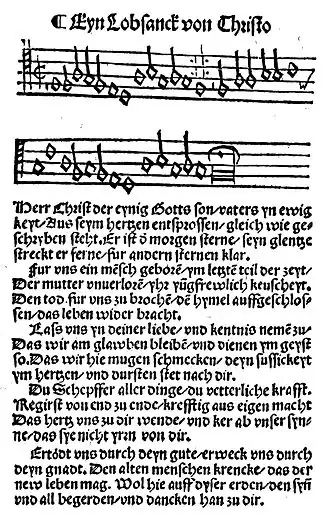 ¶ Eyn Lobsanck von Christo
Herr Christ der eynig Gotts son/vaters yn ewig
keyt/Aus seym hertzen entsprossen/gleich wie ge-
schryben steht. Er ist d̄ morgen sterne/seyn glentze
streckt er ferne/fur andern sternen klar.
Fur vns ein mēsch geborē/ym letztē teil der zeyt/
Der mutter vnuerlorē/yhr yügfrewlich keuscheyt.
Den tod fur vns zu brochē/dē hymel auffgeschlos-
sen/das leben wider bracht.
Lass vns yn deiner liebe/vnd kentnis nemē zu/
Das wir am glawben bleibē/vnd dienen ym geyst
so. Das wir hie mugen schmecken/deyn sussickeyt
ym hertzen/vnd dursten stet nach dir.
Du Schepffer aller dinge/du vetterliche krafft.
Regirst von end zu ende/krefftig aus eigen macht
Das hertz vns zu dir wende/vnd ker ab vnser syn-
ne/das sye nicht yrn von dir.
Ertödt vns durch deyn gute/erweck vns durch
deyn gnadt. Den alten menschen krencke/das der
new leben mag. Wol hie auff dyser erden/den syñ
vnd all begerden/vnd dancken han zu dir.